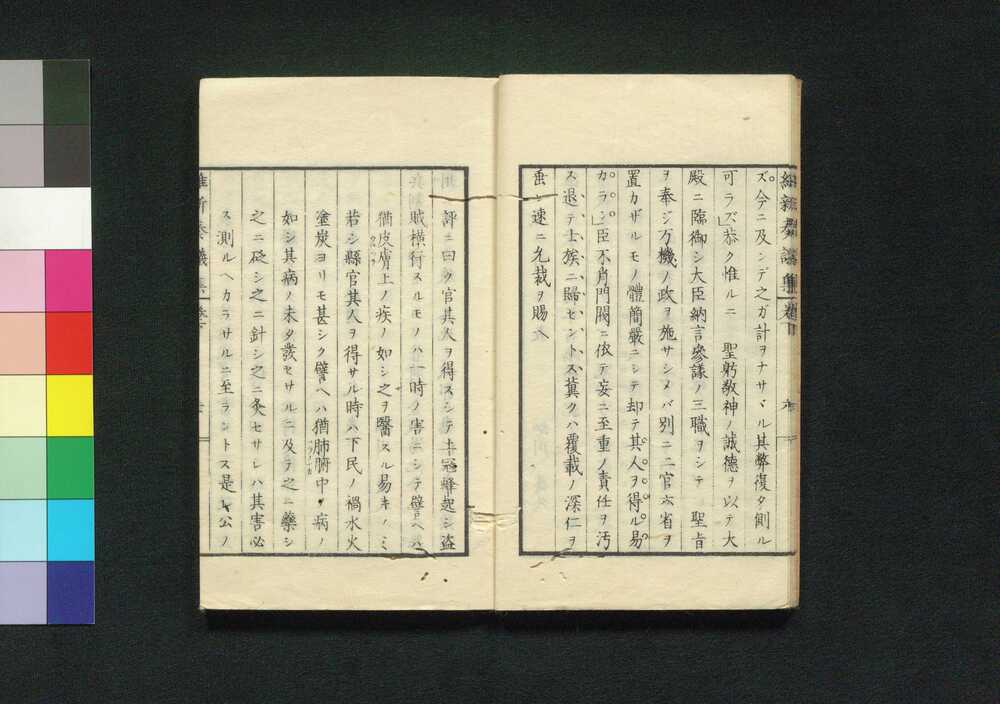 維新奏議集 卷下
ズ今ニ及ンデ之ガ計ヲナサヾル其弊復タ測ル
可ラズ恭ク惟ルニ　聖躬敬神ノ誠德ヲ以テ大
殿ニ臨御シ大臣納言參議ノ三職ヲシテ　聖旨
ヲ奉ジ万機ノ政ヲ施サシメバ別ニ二官六省ヲ
置カザルモノ體簡嚴ニシテ却テ其人ヲ得ル易
カラン臣不肖門閥ニ依テ妄ニ至重ノ責任ヲ汚
ス退テ士族ニ歸セントス冀クハ覆載ノ深仁ヲ
垂シ速ニ允裁ヲ賜へ
評ニ曰ク官其人ヲ得スシテ土冠蜂起シ盜
賊橫行スルモノハ一時ノ害ニシテ譬ヘバ
猶皮膚上ノ疾ノ如シ之ヲ醫スル易キノミ
若シ縣官其人ヲ得サル時ハ下民ノ禍水火
塗炭ヨリモ甚シク譬ヘハ猶肺腑中ノ病ノ
如シ其病ノ未タ發セサルニ及テ之ニ藥シ
之ニ砭シ之ニ針シ之ニ灸セサレハ其害必
ス測ルヘカラサルニ至ラントス是レ公ノ
維新奏議集 卷下